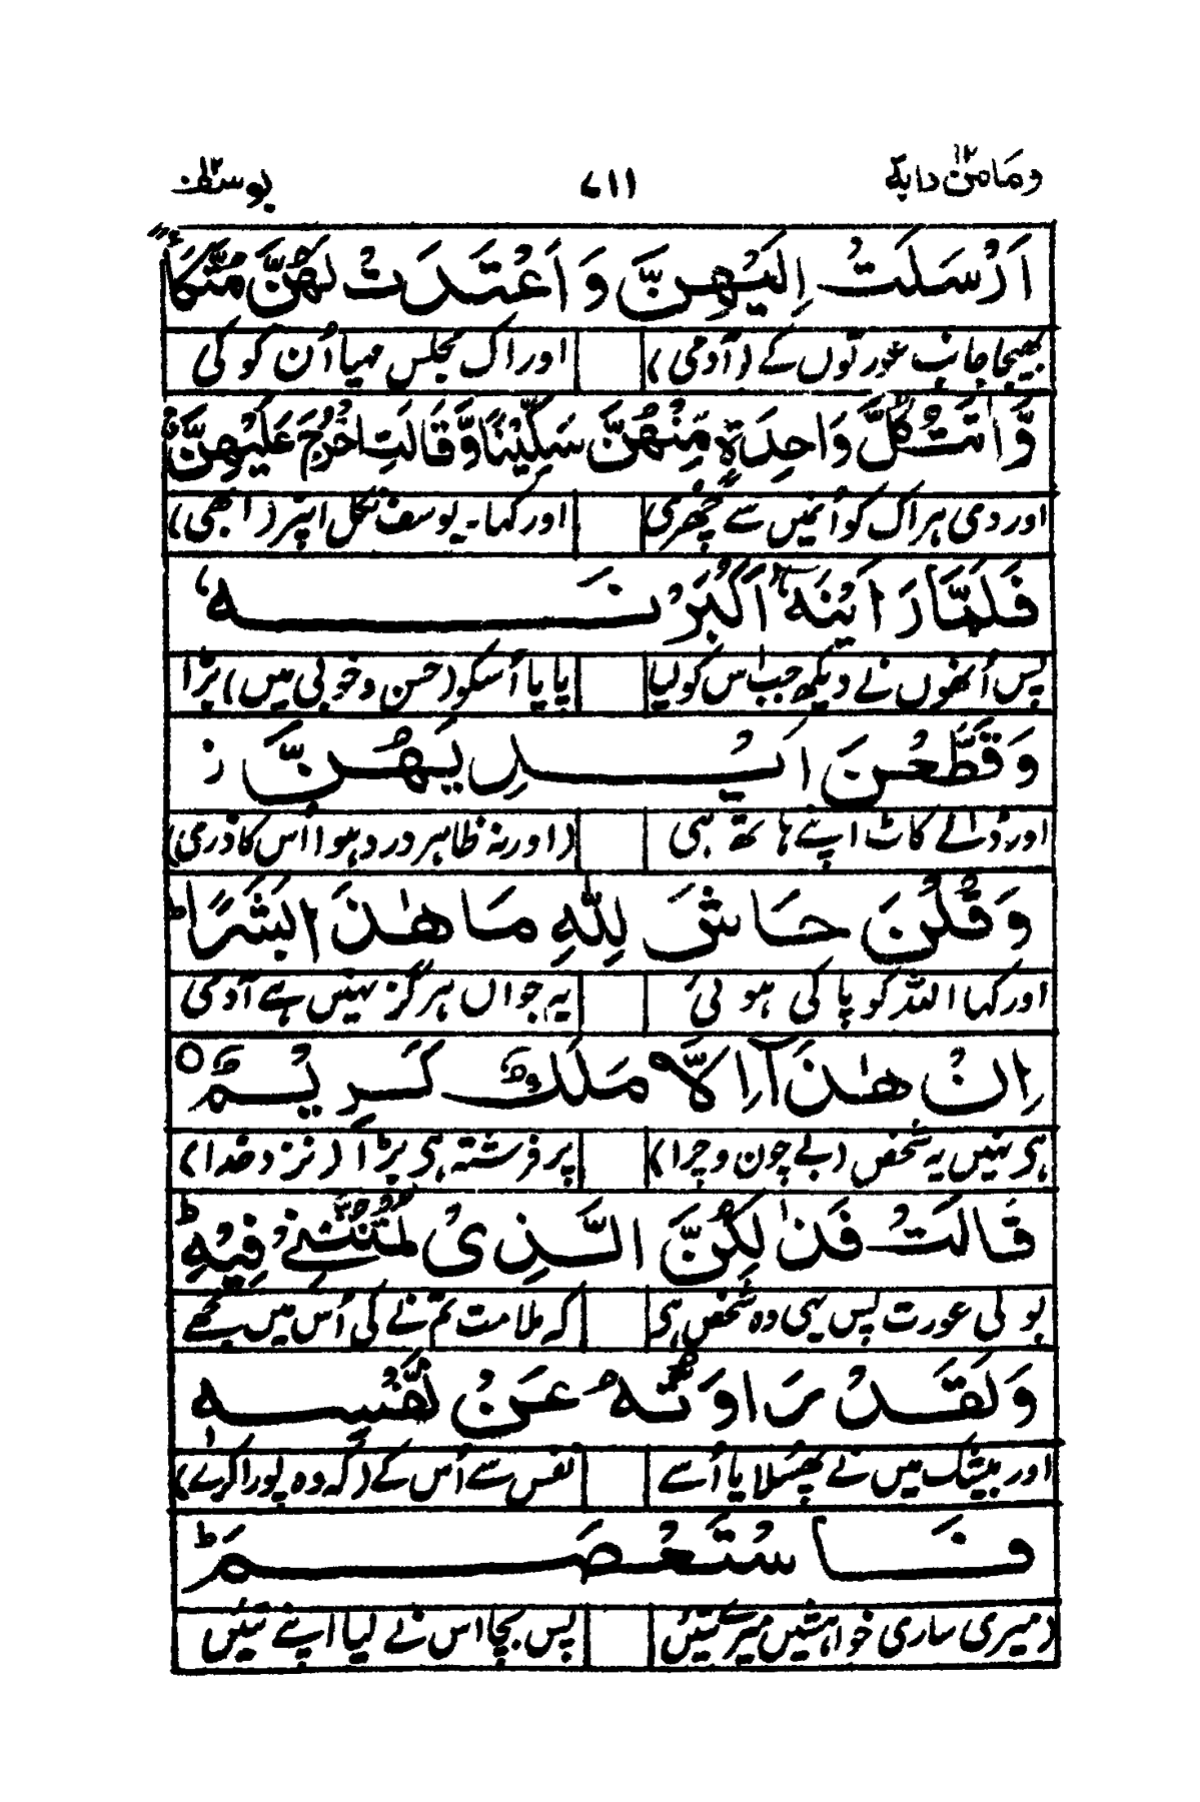 ومامن دابة ١٢ ٧١١ يوسف ١٢
اَرْسَلَتْ اِلَيْهِنَّ وَاَعْتَدَتْ لَهُنَّ مُتَّكَاً
بھیجا جانب عورتوں کے (آدمی) اور اک مجلس مہیا اُن کو کی
وَّاٰتَتْ كُلَّ وَاحِدَةٍ مِّنْهُنَّ سِكِّيْنًا وَّقَالَتِ اخْرُجْ عَلَيْهِنَّ ۚ
اور دی ہر اک کو اُنمیں سے چھری اور کہا۔ یوسف نکل اپنر (ابھی)
فَلَمَّا رَاَيْنَهٗٓ اَكْبَرْنَهٗ
پس اُنھوں نے دیکھ جب اس کو لیا پایا اُسکو (حسن و خوبی میں) بڑا
وَقَطَّعْنَ اَيْدِيَهُنَّ ز
اور ڈالے کاٹ اپنے ہاتھ ہی (اور نہ ظاہر درد ہوا اُس کا ذری)
وَقُلْنَ حَاشَ لِلّٰهِ مَا هٰذَا بَشَرًا ؕ
اور کہا اللہ کو پاکی ہوئی یہ جواں ہرگز نہیں ہے آدمی
اِنْ هٰذَآ اِلَّا مَلَكٌ كَرِيْمٌ ○
ہی نہیں یہ شخص (بے چون و چرا) پر فرشتہ ہی بڑا (نزد خدا)
قَالَتْ فَذٰلِكُنَّ الَّذِىْ لُمْتُنَّنِىْ فِيْهِ ؕ
بولی عورت پس یہی وہ شخص ہی کہ ملامت تم نے کی اُس میں مجھے
وَلَقَدْ رَاوَدْتُّهٗ عَنْ نَّفْسِهٖ
اور بیشک میں نے پھسلایا اُسے نفس سے اُس کے (کہ وہ پورا کرے)
فَاسْتَعْصَمَ ؕ
(میری ساری خواہشیں میرے تئیں پس بچا اس نے لیا اپنے تئیں